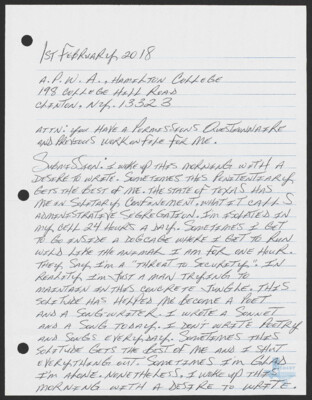 1st February, 2018
A.P.W.A., Hamilton College
198 College Hill Road
Clinton, N.Y. 13323
Attn: You have a Permissions Questionnaire
and previous work on file for me.
Submission: I woke up this morning with a
desire to write. Sometimes this penitentiary
gets the best of me. The State of Texas has
me in solitary confinement, what it calls
administrative segregation. I'm isolated in
my cell 24 hours a day. Sometimes I get
to go inside a dogcage where I get to run
wild like the animal I am for one hour.
They say, I'm a "threat to security". In
reality, I'm just a man trying to
maintain in this concrete jungle. This
solitude has helped me become a poet
and a songwriter. I wrote a sonnet
and a song today. I don't write poetry
and songs everyday. Sometimes this
solitude gets the best of me and I shut
everything out. Sometimes I'm glad
I'm alone. Nonetheless, I woke up this
morning with a desire to write.